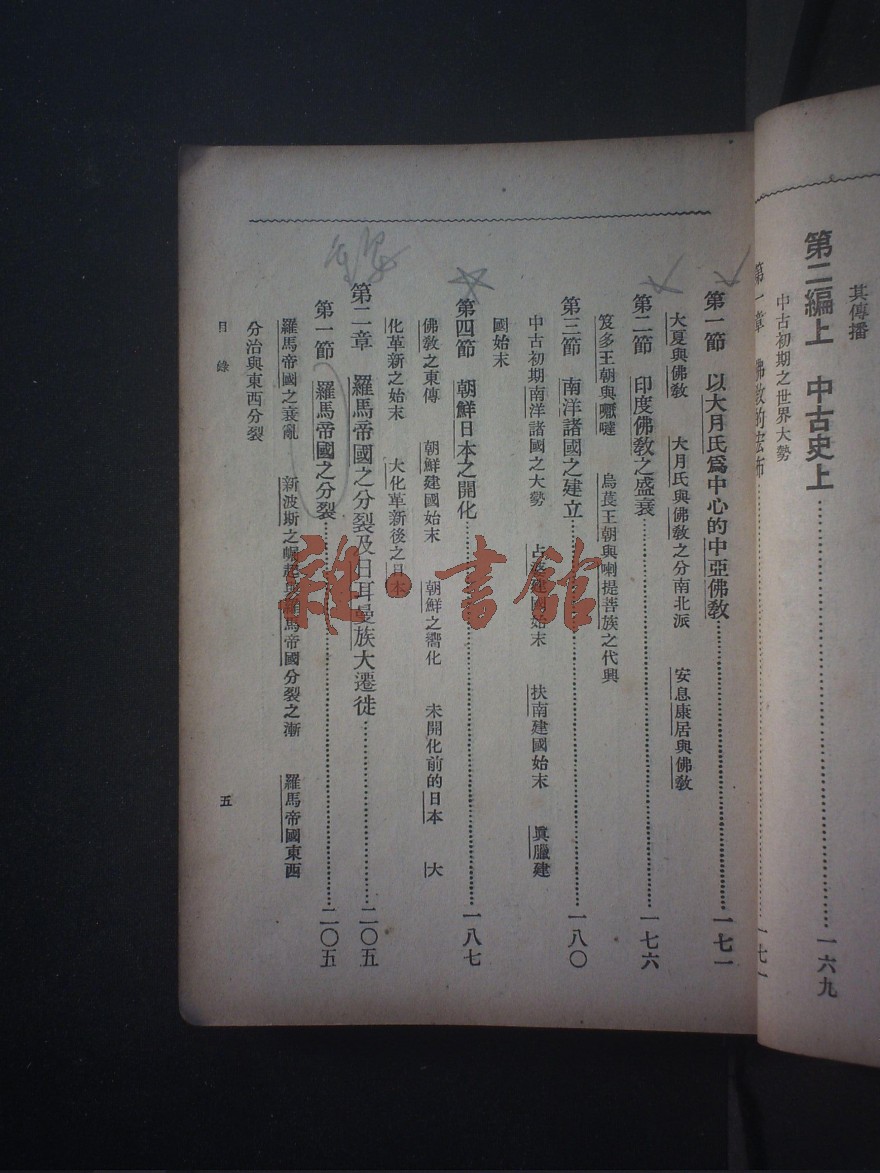 其傳播
第二編上　中古史上……一六九
中古初期之世界大勢
第一章　佛敎的宏布……一七一
第一節　以大月氏爲中心的中亞佛敎……一七一
大夏與佛敎　大月氏與佛敎之分南北派　安息康居與佛敎
第二節　印度佛敎之盛衰……一七六
笈多王朝與嚈噠　烏萇王朝與喇提普族之代興
第三節　南洋諸國之建立……一八〇
中古初期南洋諸國之大勢　占婆建國始末　扶南建國始末　眞臘建
國始末
第四節　朝鮮日本之開化……一八七
佛敎之東傳　朝鮮建國始末　朝鮮之嚮化　未開化前的日本　大
化革新之始末　大化革新後之日本
第二章　羅馬帝國之分裂及日耳曼族大遷徙……二〇五
第一節　羅馬帝國之分裂……二〇五
羅馬帝國之衰亂　新波斯之崛起與羅馬帝國分裂之漸　羅馬帝國東西
分治與東西分裂
目錄
五
雜·書館